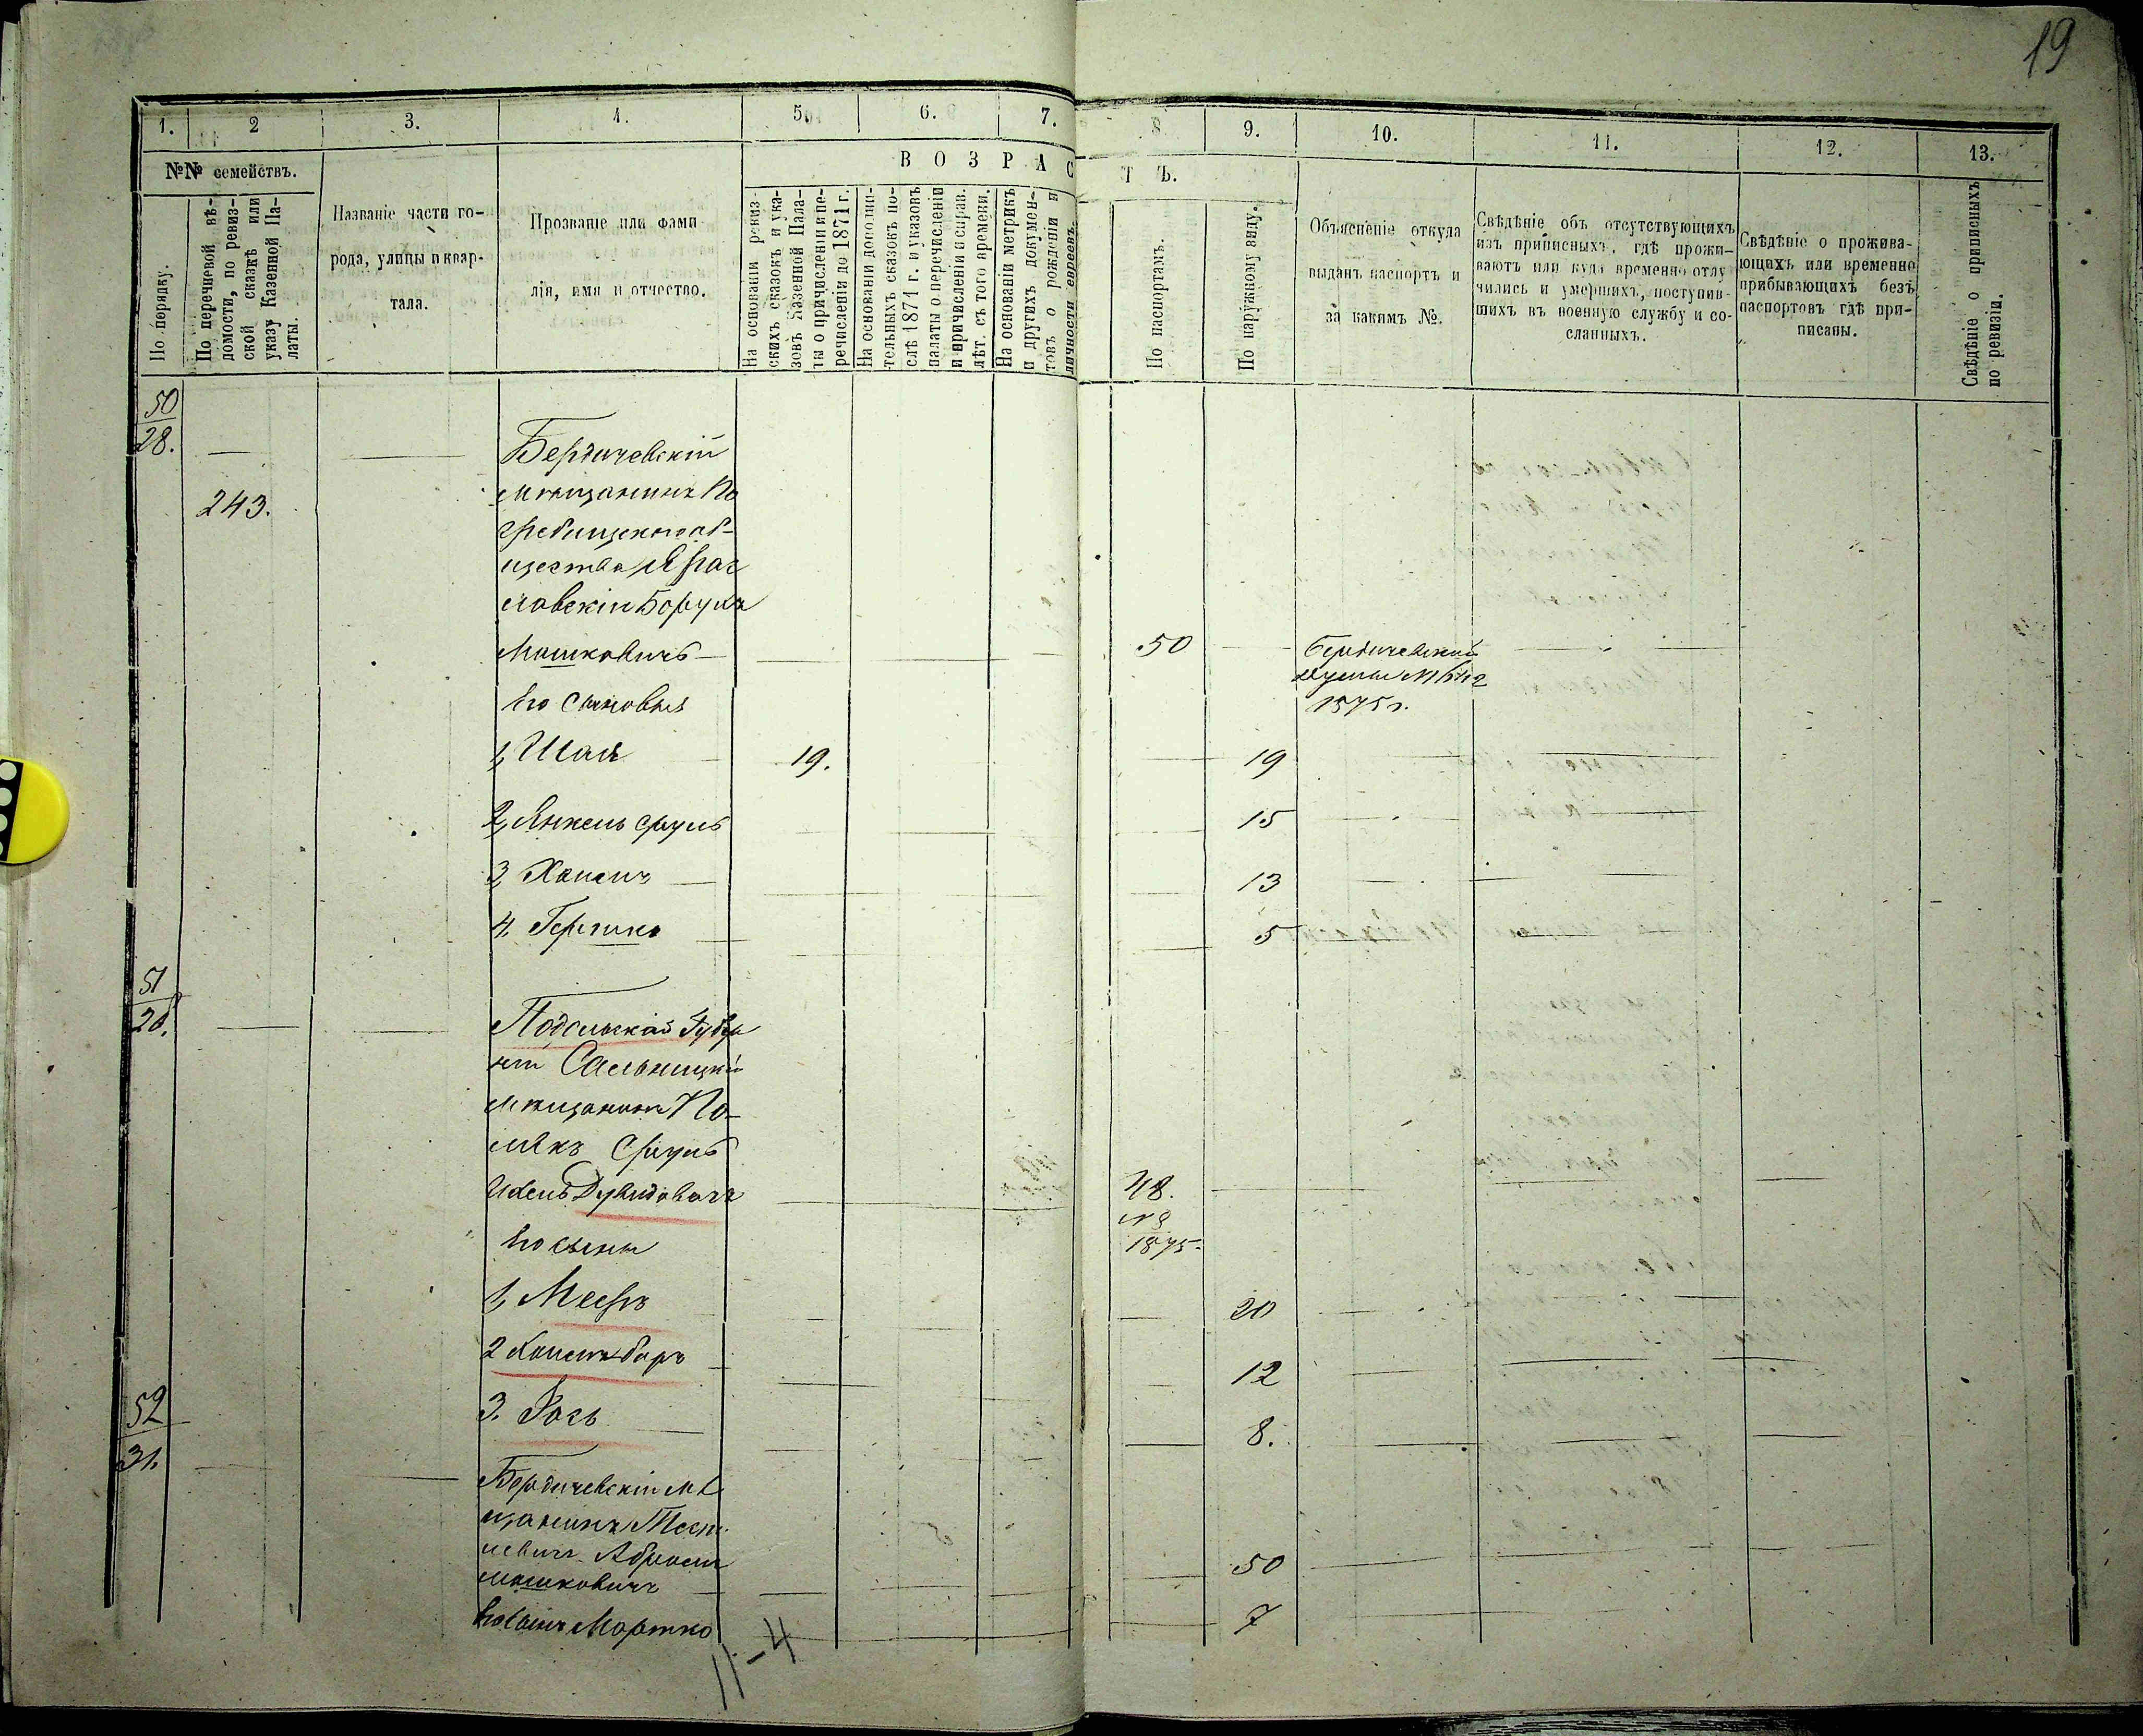 19
1. 2 3. 4. 5. 6. 7. 8. 9. 10. 11. 12. 13.
№№ семействъ.
В О З Р А С Т Ъ.
По порядку.
По перечневой вѣ-
домости, по ревиз-
ской сказкѣ или
указу Казенной Па-
латы.
Названіе части го-
рода, улицы и квар-
тала.
Прозваніе или фами
лія, имя и отчество.
На основаніи ревиз-
скихъ сказокъ и ука-
зовъ Казенной Пала-
ты о причисленіи и пе-
речисленіи до 1871 г.
На основаніи дополни-
тельныхъ сказокъ по-
слѣ 1871 г. и указовъ
палаты о перечисленіи
и причисленіи и справ.
лѣт. съ того времени.
На основаніи метрикъ
и другихъ докумен-
товъ о рожденіи и
личности евреевъ.
По паспортамъ.
По наружному виду.
Объясненіе откуда
выданъ паспортъ и
за какимъ №.
Свѣдѣніе объ отсутствующихъ
изъ приписныхъ, гдѣ прожи-
ваютъ или куда временно отлу
чились и умершихъ, поступив-
шихъ въ военную службу и со-
сланныхъ.
Свѣдѣніе о прожива-
ющихъ или временно
прибывающихъ безъ
паспортовъ гдѣ при-
писаны.
Свѣдѣніе о приписныхъ
по ревизіи.
50
28.
Бердичевскій
243. мѣщанинъ По
гребищенского об-
щества Ярос
лавскій Борухъ
Мошковичъ 50 Бердичевской
думы №
1875 г.
Его сыновья
1, Шая 19. 19
2, Янкель Сруль 15
3, Хаимъ 13
4. Гершко 5
51
28.
Подольской Губер
ніи Сальницкій
мѣщанинъ По-
лякъ Сруль
Ихель Дувидовичъ 48.
№
1875.
Его сыны
1, Мееръ 20
2 Хаимъ Беръ 12
3. 8.
52
31.
Бердичевскій мѣ
щанинъ
Абрамъ
Мошковичъ 50
Его сынъ Мортко 7
11-4